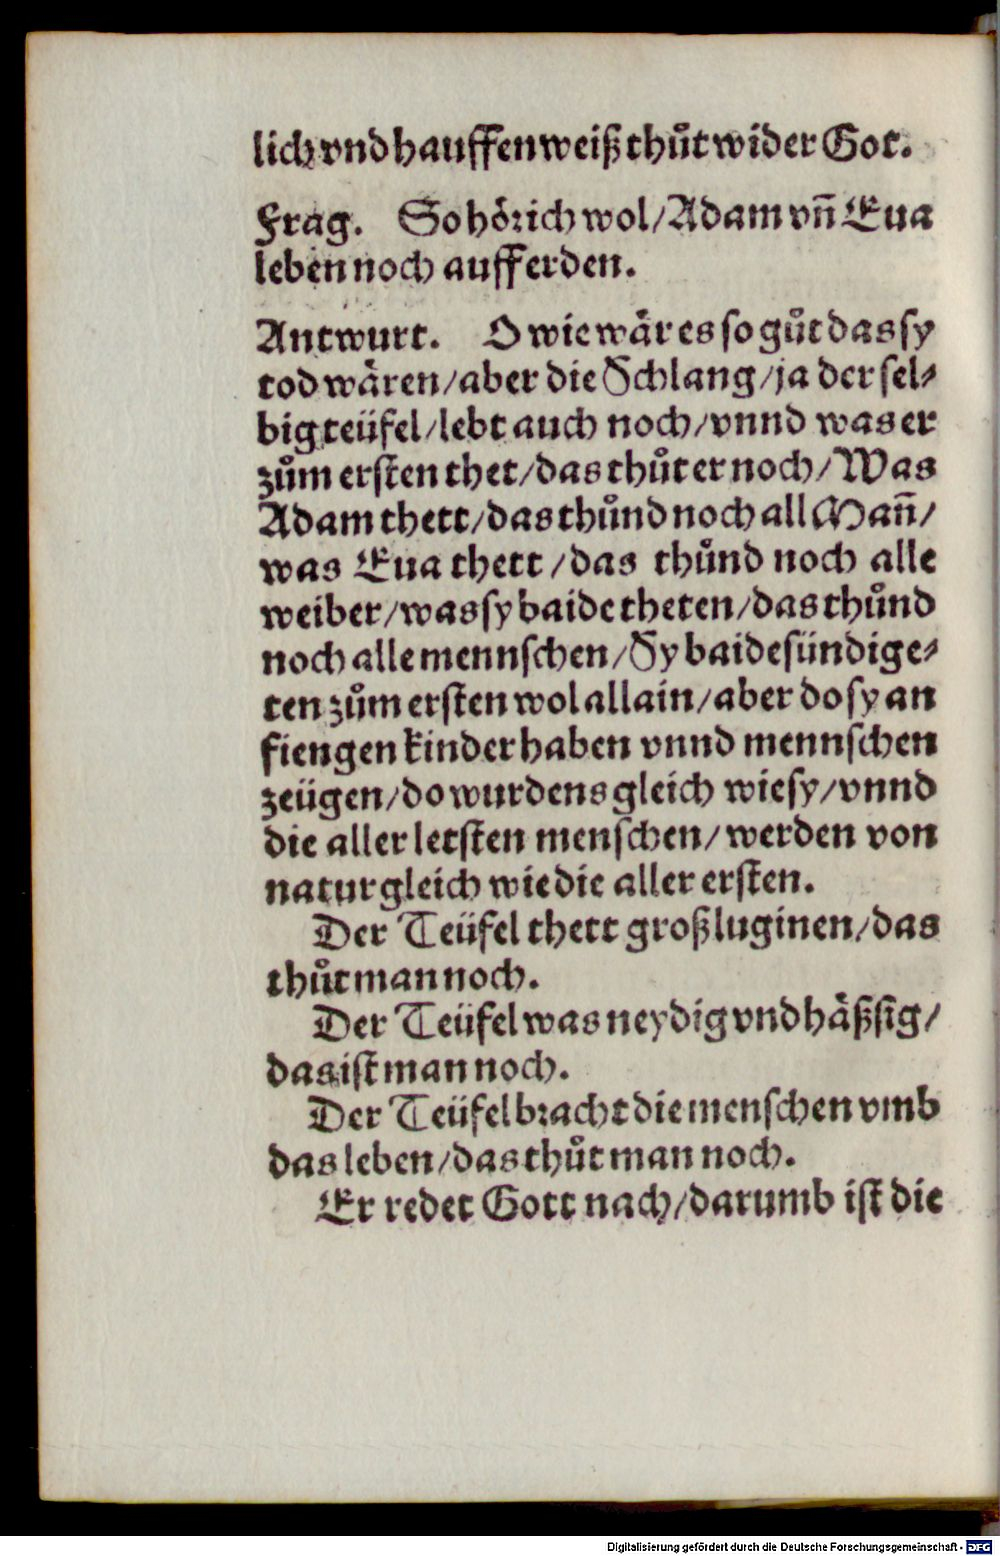 lich vnd hauffenweiß thůt wider Got.
Frag. So hör ich wol/Adam vñ Eua
leben noch auff erden.
Antwurt. O wie wär es so gůt das sy
tod wären/aber die Schlang/ja der sel⸗
big teüfel/lebt auch noch/vnnd was er
zům ersten thet/das thůt er noch/Was
Adam thett/das thůnd noch all Mañ/
was Eua thett/das thůnd noch alle
weiber/was sy baide theten/das thůnd
noch alle mennschen/Sy baide sündige⸗
ten zům ersten wol allain/aber do sy an
fiengen kinder haben vnnd mennschen
zeügen/do wurdens gleich wie sy/vnnd
die aller letsten menschen/werden von
natur gleich wie die aller ersten.
Der Teüfel thett groß luginen/das
thůt man noch.
Der Teüfel was neydig vnd häßsig/
das ist man noch.
Der Teüfel bracht die menschen vmb
das leben/das thůt man noch.
Er redet Gott nach/darumb ist die
Digitalisierung gefördert durch die Deutsche Forschungsgemeinschaft - DFG